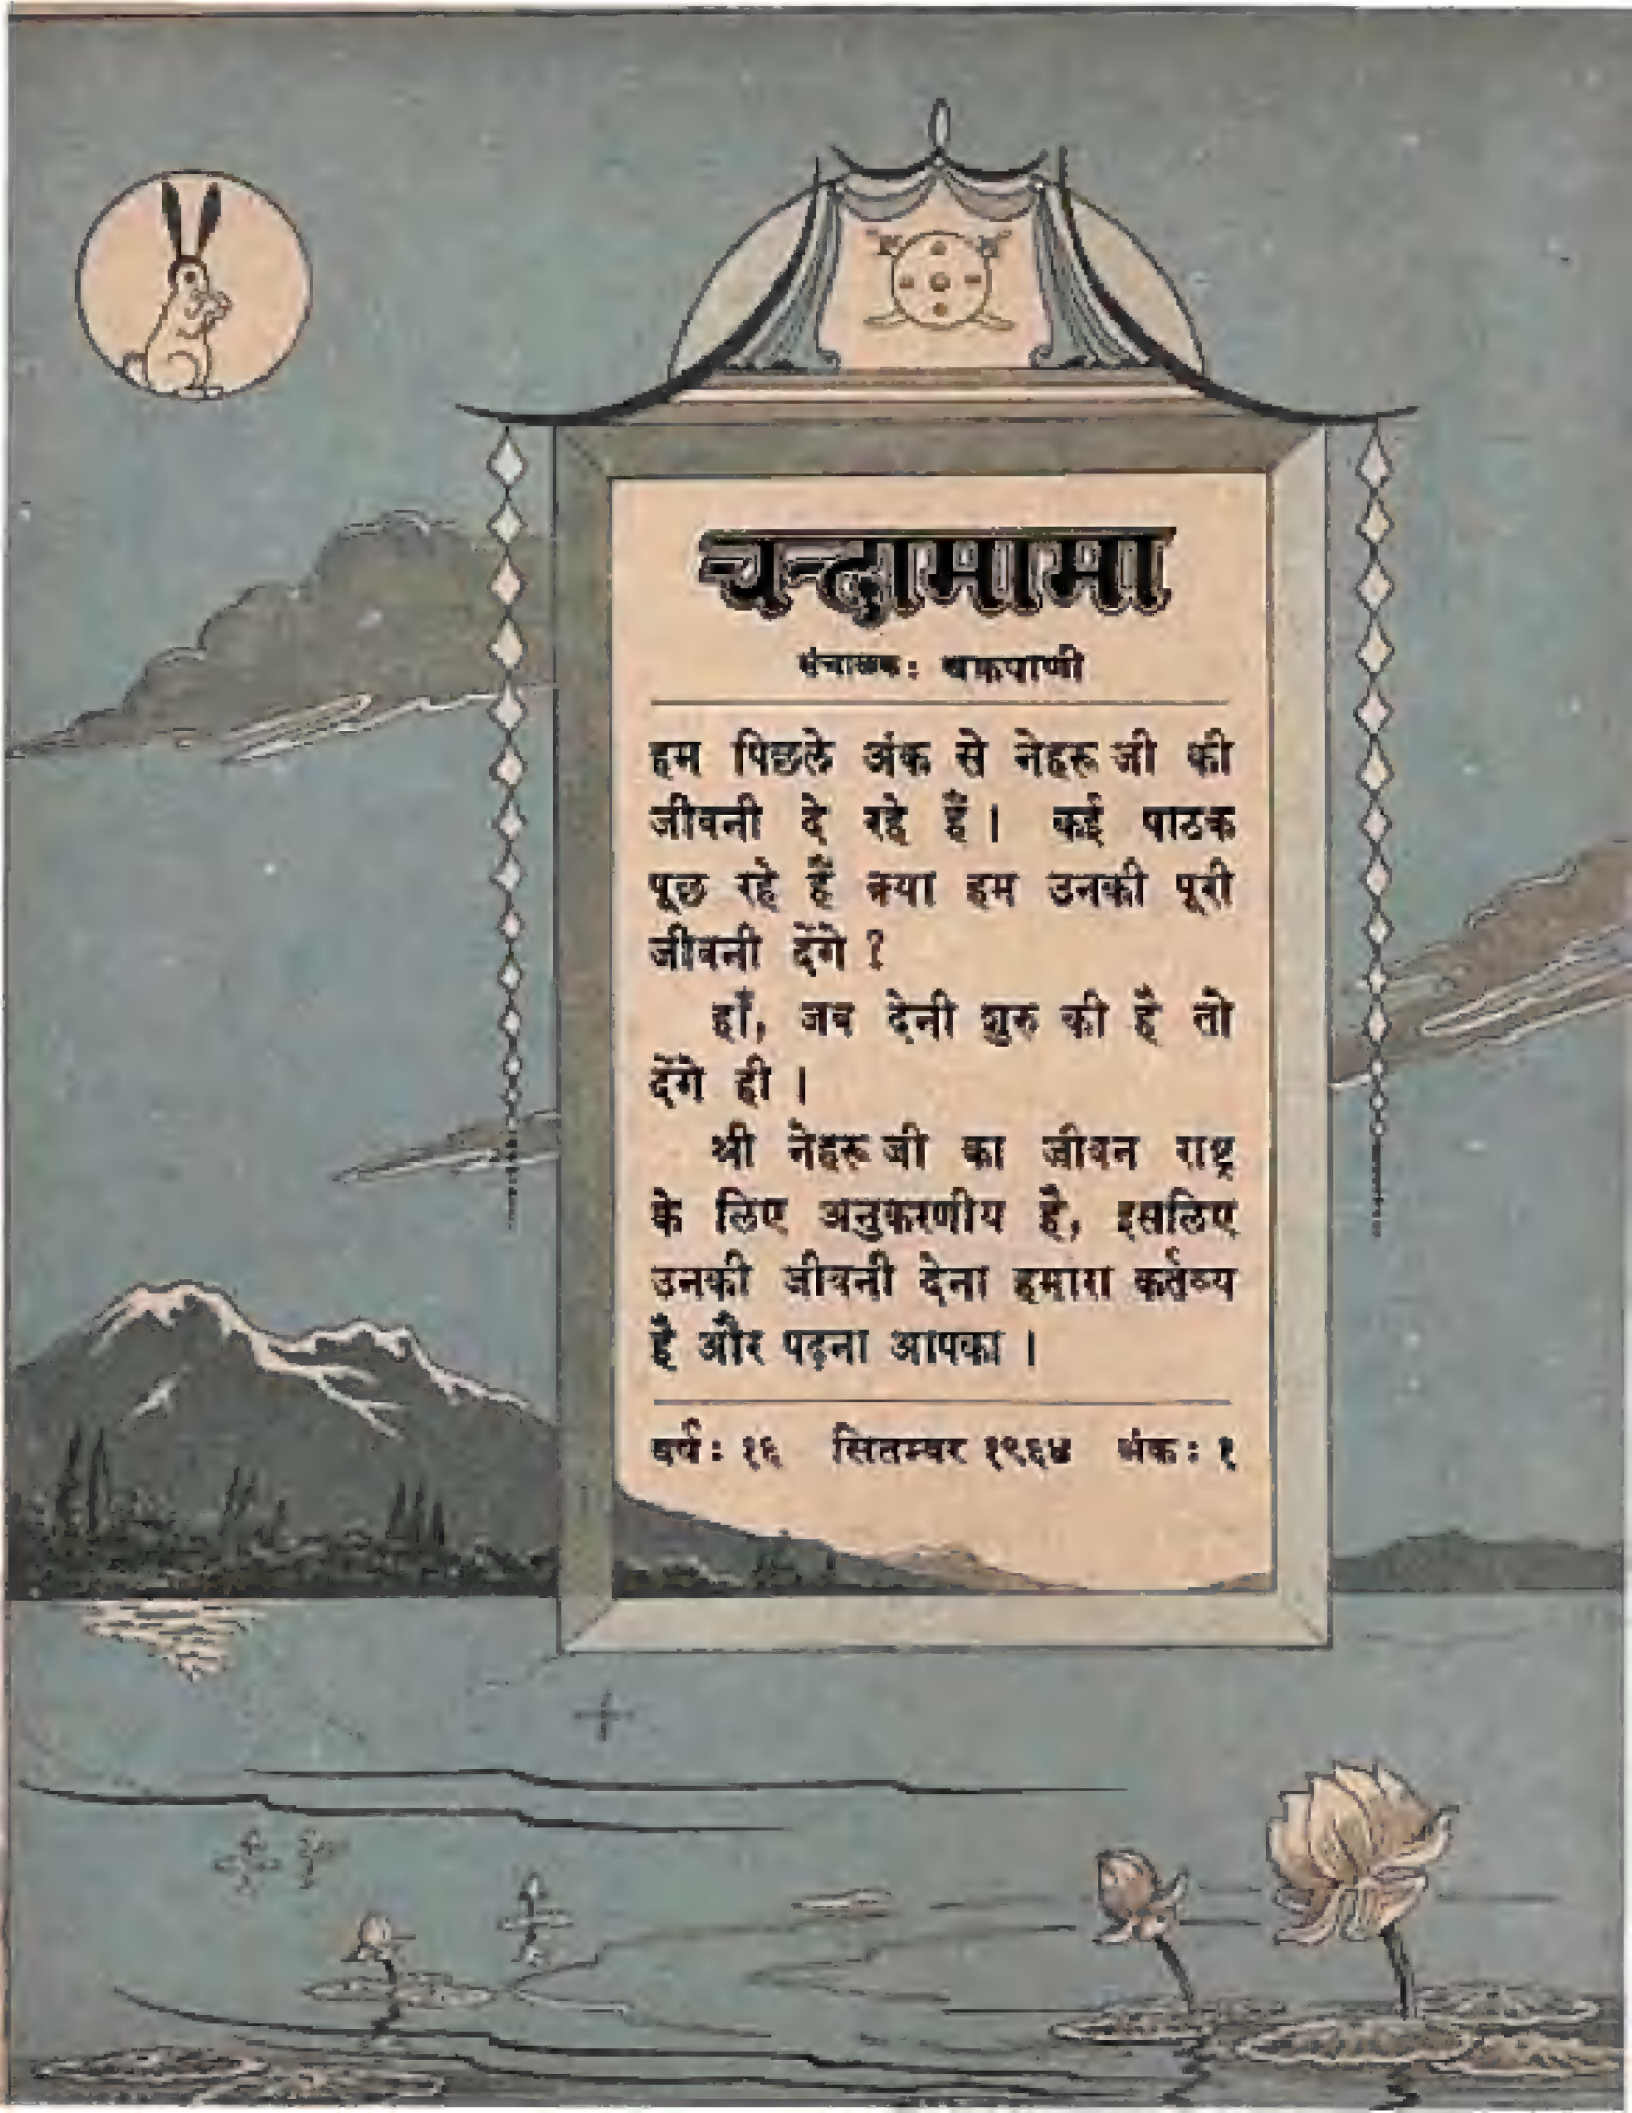 चन्दामामा
संचालक: चक्रपाणी
हम पिछले अंक से नेहरू जी की
जीवनी दे रहे हैं। कई पाठक
पूछ रहे हैं क्या हम उनकी पूरी
जीवनी देंगे?
हाँ, जब देनी शुरु की है तो
देंगे ही।
श्री नेहरू जी का जीवन राष्ट्र
के लिए अनुकरणीय है, इसलिए
उनकी जीवनी देना हमारा कर्तव्य
है और पढ़ना आपका।
वर्ष: १६ सितम्बर १९६४ अंक: १